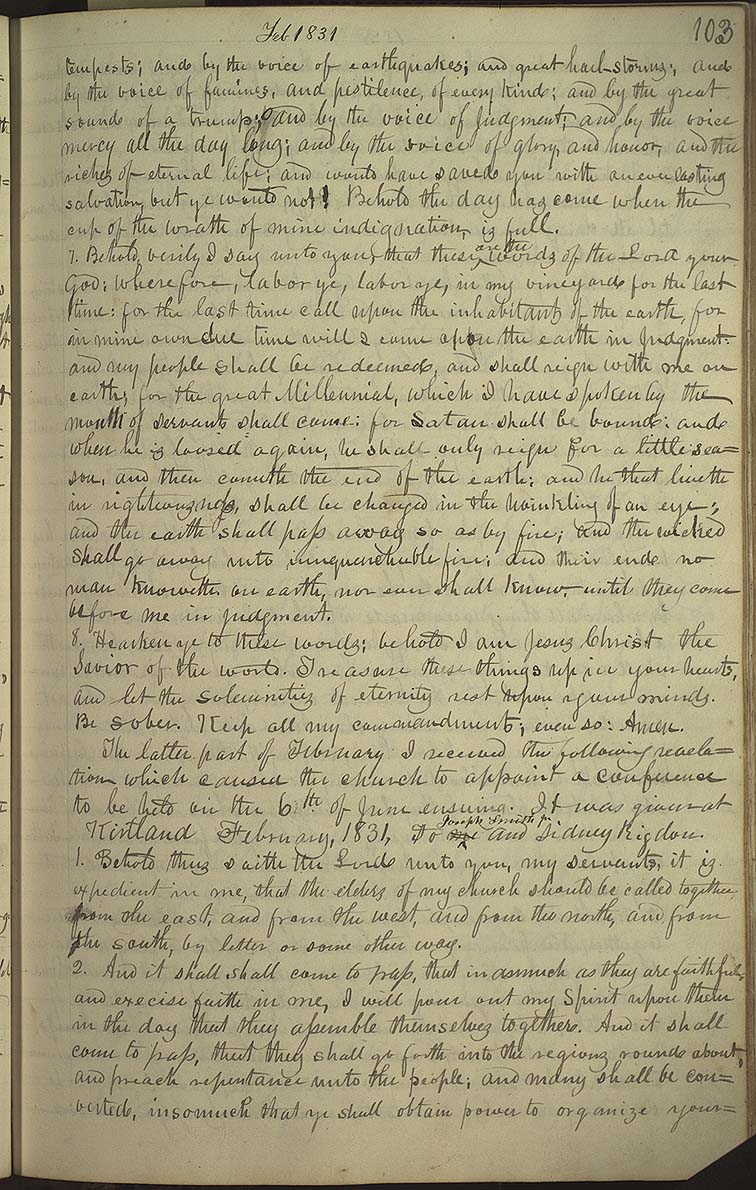 Feb 1831
103
tempests; and by the voice of earthquakes; and great hail-storms; and
by the voice of famines, and pestilence, of every kind; and by the great
sound of a trump; and by the voice of Judgment; and by the voice
mercy all the day long; and by the voice of glory, and honor, and the
riches of eternal life; and would have saved you with an everlasting
salvation, but ye would not! Behold the day has come when the
cup of the wrath of mine indignation, is full.
7. Behold, verily I say unto you, that these are the words of the Lord your
God: wherefore, labor ye, labor ye, in my vineyard for the last
time: for the last time call upon the inhabitants of the earth, for
in mine own due time will I come upon the earth in Judgment:
and my people shall be redeemed, and shall reign with me on
earth; for the great Millennial, which I have spoken by the
mouth of servants shall come: for Satan shall be bound: and
when he is loosed again, he shall only reign for a little sea=
son, and then cometh the end of the earth; and he that liveth
in righteousness, shall be changed in the twinkling of an eye;
and the earth shall pass away so as by fire; and the wicked
shall go away unto unquenchable fire; and their end no
man knoweth on earth, nor ever shall know, until they come
before me in judgment.
8. Hearken ye to these words; behold I am Jesus Christ the
Savior of the world. Treasure these things up in your hearts,
and let the solemnities of eternity rest upon your minds.
Be sober. Keep all my commandments; even so: Amen.
The latter part of February I received the following revela=
tion which caused the church to appoint a conference
to be held on the 6th of June ensuing. It was given at
Kirtland February, 1831, to Joseph Smith jr and Sidney Rigdon.
1. Behold thus saith the Lord unto you, my servants, it is
expedient in me, that the elders of my church should be called together,
from the east, and from the west, and from the north, and from
the south, by letter or some other way.
2. And it shall shall come to pass, that in asmuch as they are faithful,
and execise faith in me, I will pour out my Spirit upon them
in the day that they assemble themselves together. And it shall
come to pass, that they shall go forth into the regions round about,
and preach repentance unto the people; and many shall be con=
verted, insomuch that ye shall obtain power to organize your=